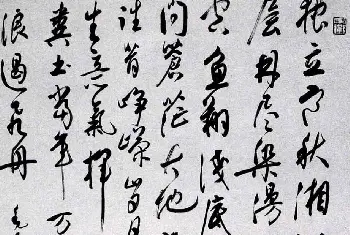 独立寒秋湘
层林尽染漫
空鱼翔浅底
问蒼茫大地
往昔峥嵘岁月
生意氣揮
粪土當年万
浪遏飞舟